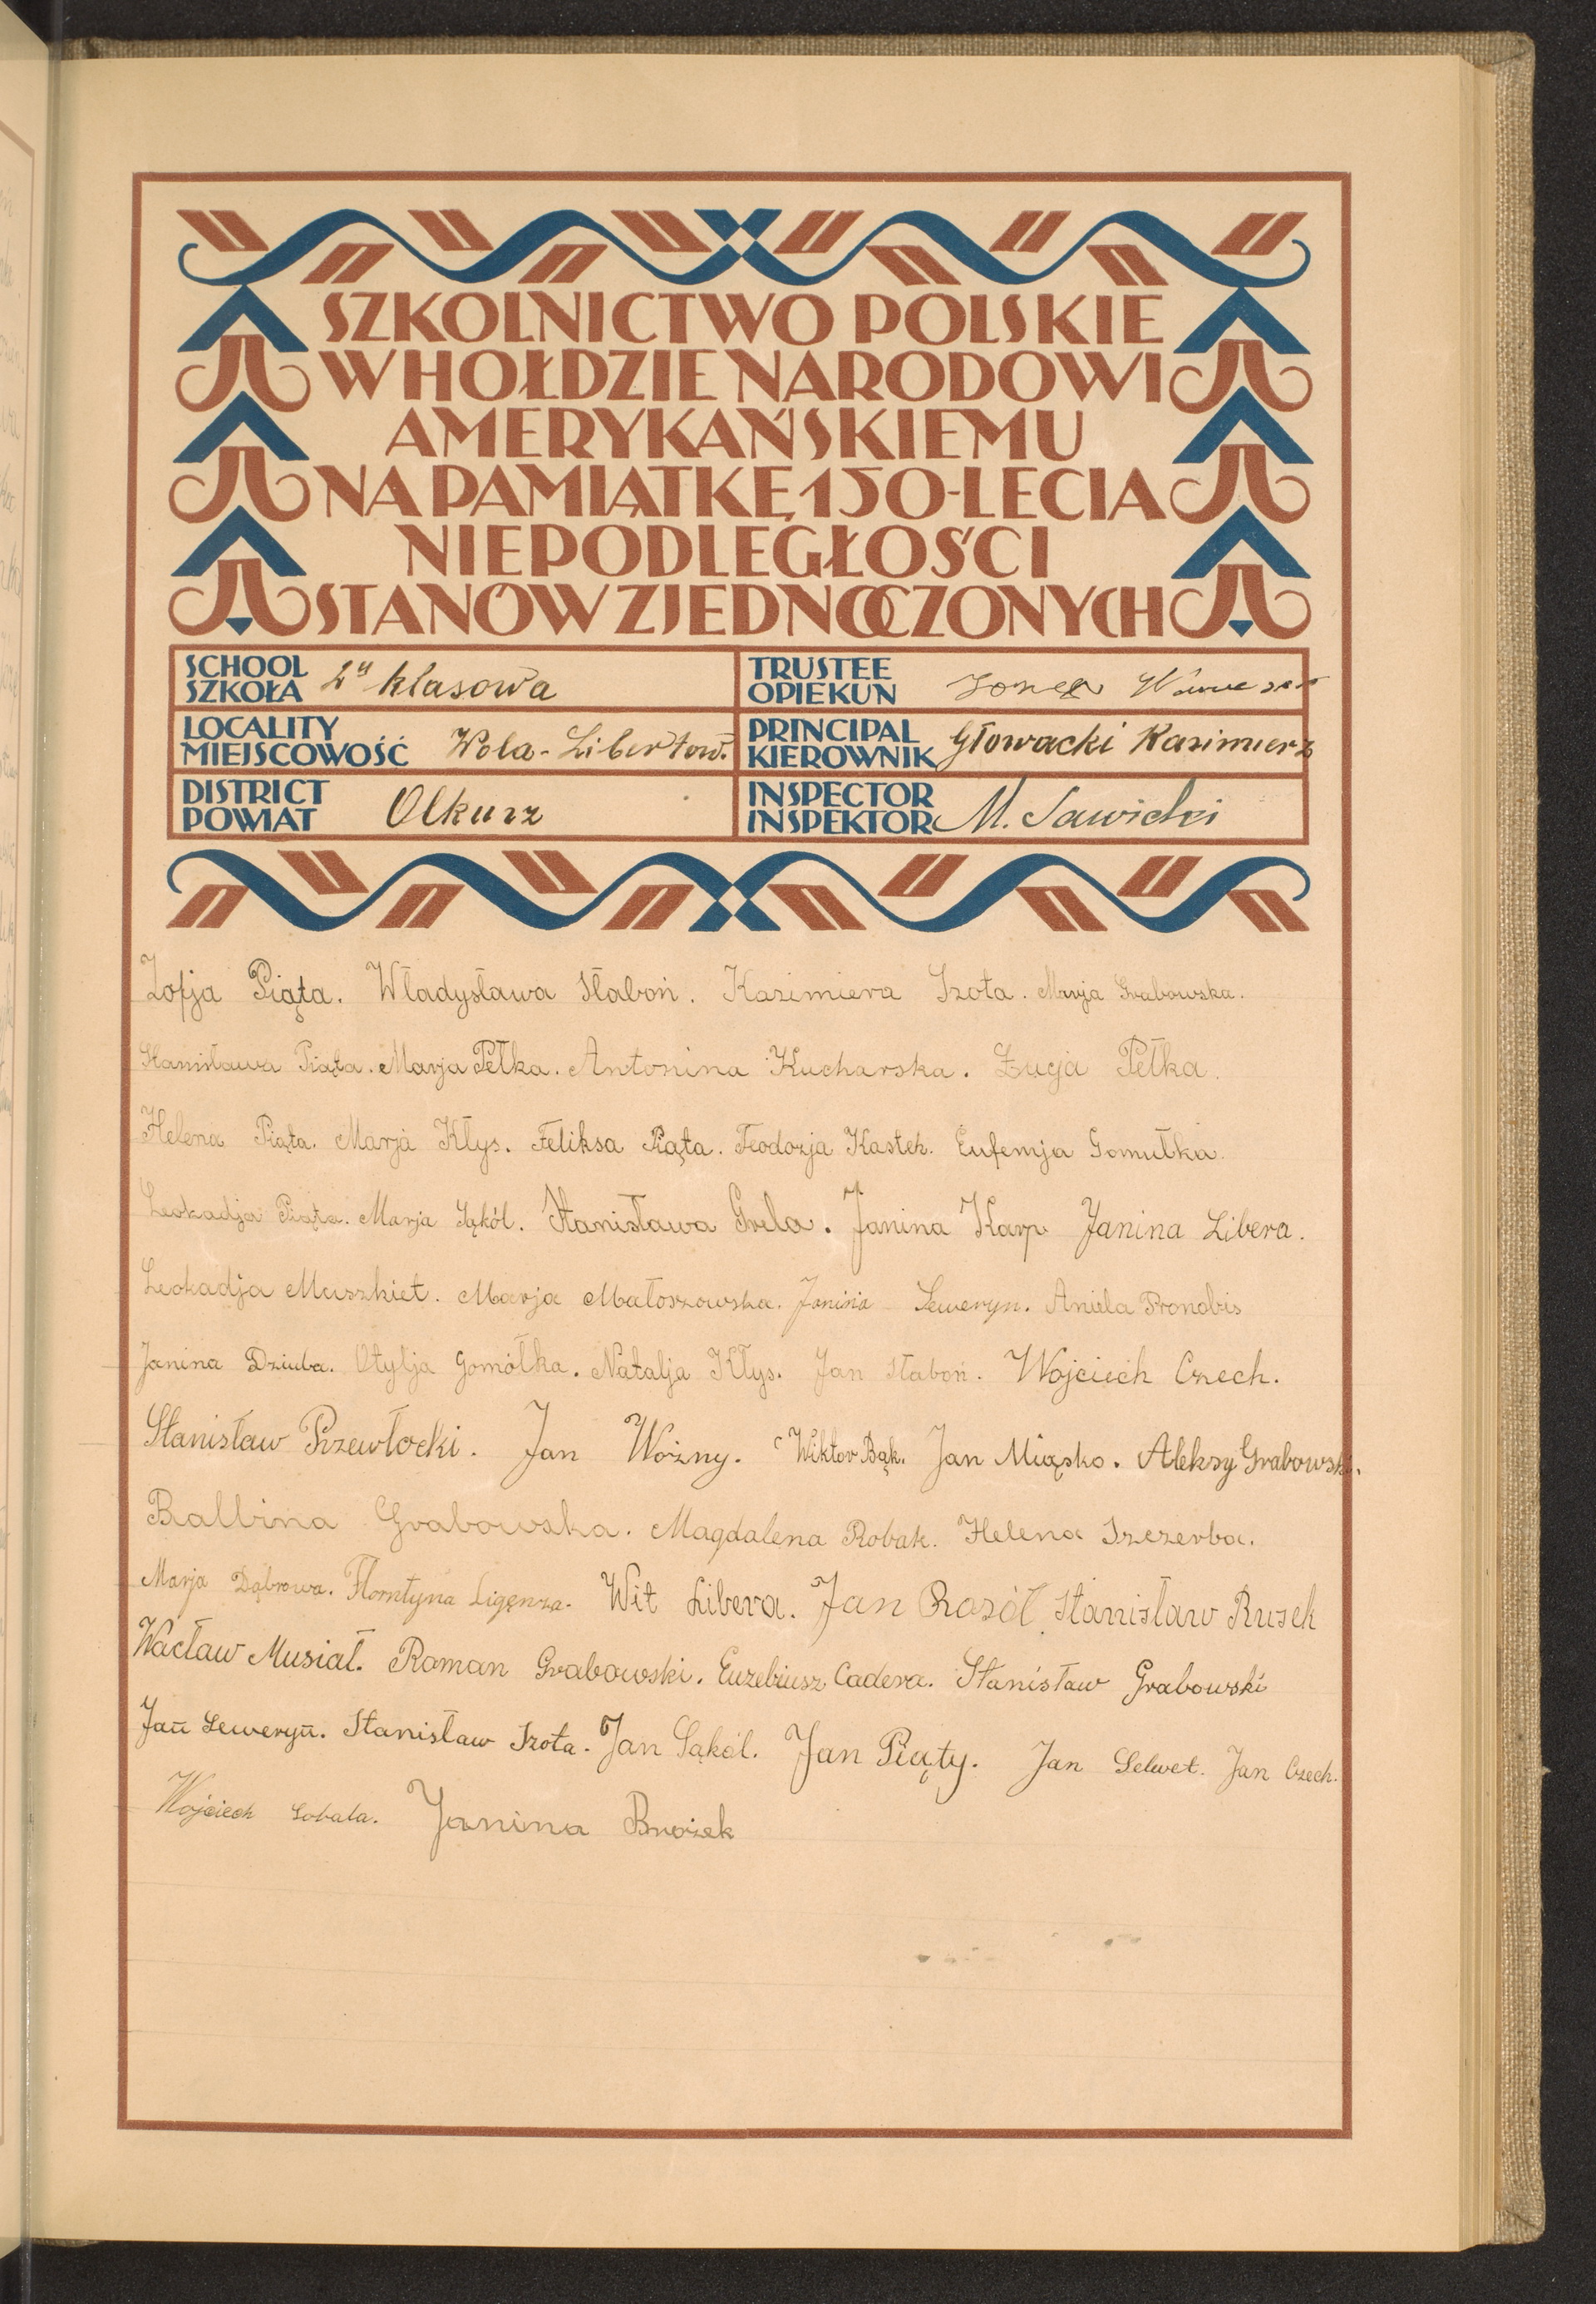 SZKOLNICTWO POLSKIE
W HOŁDZIE NARODOWI
AMERYKAŃSKIEMU
NA PAMIĄTKĘ 150-LECIA
NIEPODLEGŁOŚCI
STANÓW ZJEDNOCZONYCH
SCHOOL
SZKOŁA 2u klasowa
TRUSTEE
OPIEKUN
LOCALITY
MIEJSCOWOŚĆ Wola-Libertow.
PRINCIPAL
KIEROWNIK Głowacki Kazimierz
DISTRICT
POWIAT Olkusz
INSPECTOR
INSPEKTOR M. Sawicki
Zofja Piąta. Władysława Słaboń. Kazimiera Szota. Marja Grabowska.
Stanisława Piąta. Marja Pełka. Antonina Kucharska. Łucja Pełka.
Helena Piąta. Marja Kłys. Feliksa Piąta. Teodozja Kastek. Eufemja Gomułka.
Leokadja Piąta. Marja Sąkól. Stanisława Grela. Janina Karp Janina Libera.
Leokadja Muszkiet. Marja Małoszowska. Janina Seweryn. Aniela Pronobis
Janina Dziuba. Otylja Gomółka. Natalja Kłys. Jan Słaboń. Wojciech Czech.
Stanisław Przewłocki. Jan Woźny. Wiktor Bąk. Jan Miąsko. Aleksy Grabowski.
Balbina Grabowska. Magdalena Robak. Helena Szczerba.
Marja Dąbrowa. Florntyna Ligęnza. Wit Libera. Jan Rosół. Stanisław Rusek
Wacław Musiał. Roman Grabowski. Euzebiusz Cadera. Stanisław Grabowski
Jan Seweryn. Stanisław Szota. Jan Sąkól. Jan Piąty. Jan Selwet. Jan Czech.
Wojciech Sobala. Janina Brożek